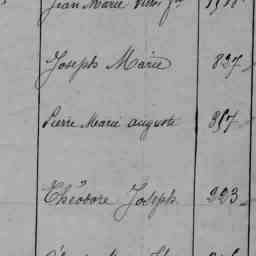 Jean Marie
Joseph Marie 837
Pierre Marie auguste 357
Théodore Joseph 223